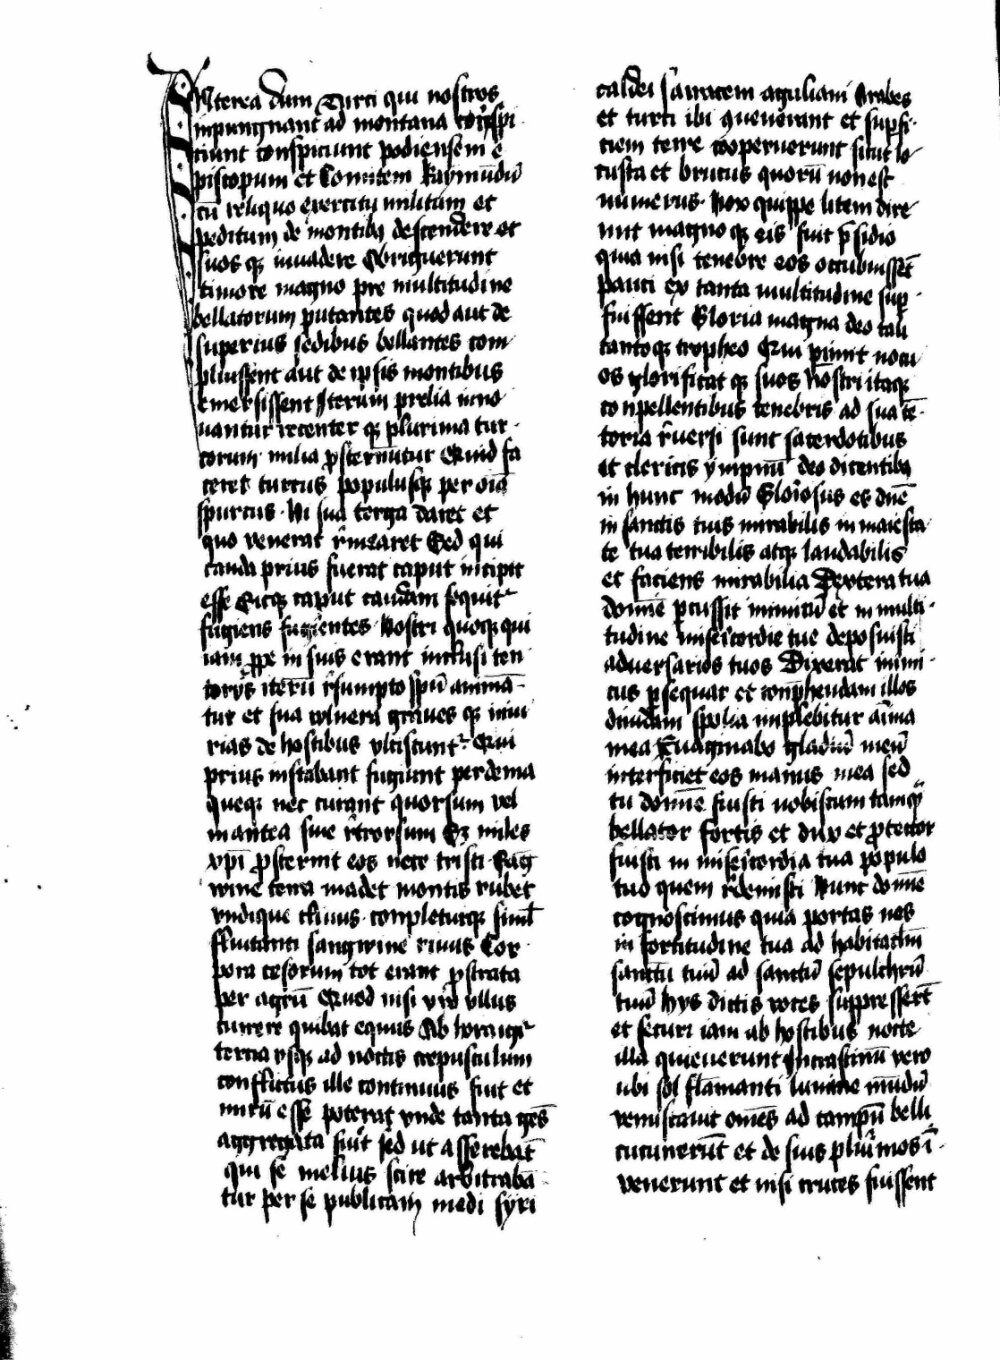 Interea dum Turci qui nostros
inpungnant ad montana conspi
ciunt conspiciunt podiensem e
piscopum et Comitem Raymūdū
cū reliquo exercitu militum et
peditum de montibꝫ descendere et
suos qꝫ invadere Obriguerunt
timore magno pre multitudine
bellatorum putantes quod aut de
superius sedibus bellantes com
pluissent aut de ipsis montibus
emersissent Iterum prelia inno
vantur recenter qꝫ plurima tur
corum milia ꝓsternūtur Quid fa
ceret turcus populusqꝫ per oīa
spurcus Ni sua terga daret et
quo venerat rͥmearet Sed qui
cauda prius fuerat caput incipit
esse Sicqꝫ caput caudam sequitʳ
fugiens fugientes Nostri quoqꝫ qui
iam ꝓpe in suis erant inclusi ten
torys iterū rͤsumpto spū animā
tur et sua vulnera graves qꝫ iniu
rias de hostibus ulciscuntʳ Qui
prius instabant fugiunt per devia
queqꝫ nec curant quorsum vel
in antea sive rͤtrorsum Eꝫ miles
xp̄i ꝓsternit eos nece tristi Sāg
wine terra madet montis rubet
undique clivus conpleturqꝫ simul
fluitanti sangwine rivus Cor
pora cesorum tot erant ꝓstrata
per agrū Quod nisi vix ullus
currere quibat equus Ab hora igʳ
tercia usqꝫ ad noctis crepusculum
conflictus ille continuus fuit et
mirū esse poterat unde tanta gēs
aggregata fuit sed ut asserebāt
qui se melius scire arbitrabā
tur per se publicam medi syri
caldei sarracem agulani Arabes
et turci ibi ꝯvenerant et suꝑfi
ciem terre cooperuerunt sicut lo
custa et brucus quorū non est
numerus Nox quippe litem dire
mit magno qꝫ eis fuit p̄sidio
quia nisi tenebre eos occubuissēt
pauci ex tanta multitudine suꝑ
fuissent Gloria magna deo tali
tantoqꝫ tropheo Qui punit nocu
os glorificat qꝫ suos Nostri itaqꝫ
conpellentibus tenebris ad sua tē
toria rͤversi sunt sacerdotibus
et clericis ympnū deo dicentibꝫ
in hunc modū Gloriosus es dn̄e
in sanctis tuis mirabilis in maiesta
te tua terribilis atqꝫ laudabilis
et faciens mirabilia Dextera tua
domīe ꝑcussit inimicū et in multi
tudine misericordie tue deposuisti
adversarios tuos Dixerat inimi
cus ꝑsequar et conp̄hendam illos
dividam spolia implebitur aīma
mea Evaginabo gladiū meū
interficiet eos manus mea sed
tu domīe fuisti nobiscum tamqͣ
bellator fortis et dux et ꝓtector
fuisti in misericordia tua populo
tuo quem rͤdemisti Nunc domīe
cognoscimus quia portas nos
in fortitudine tua ad habitaclm̄
sanctū tuū ad sanctū sepulchrū
tuū hys dictis voces suppressert̄
et securi iam ab hostibus nocte
illa quieverunt Incrastinū vero
ubi sol flamanti lumine mūdū
venustavit omēs ad campū belli
cucurrerūt et de suis plurimos ī
venerunt et nisi cruces fuissent